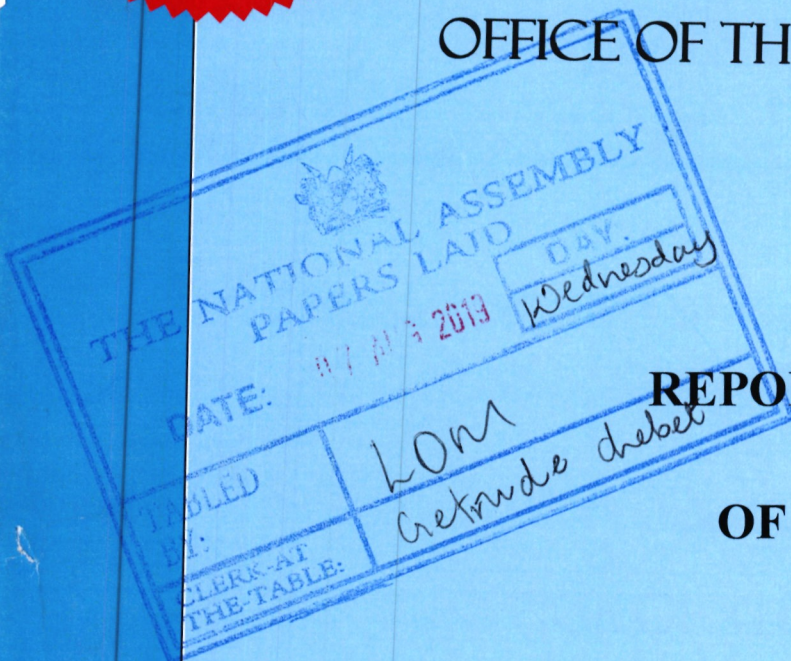 OFFICE OF TH
THE NATIONAL ASSEMBLY
PAPERS LAID
DATE: 07 AUG 2019
DAY.
Wednesday
REPO
TABLED BY: LOM
CLERK-AT THE-TABLE: Getrude chebet
OF